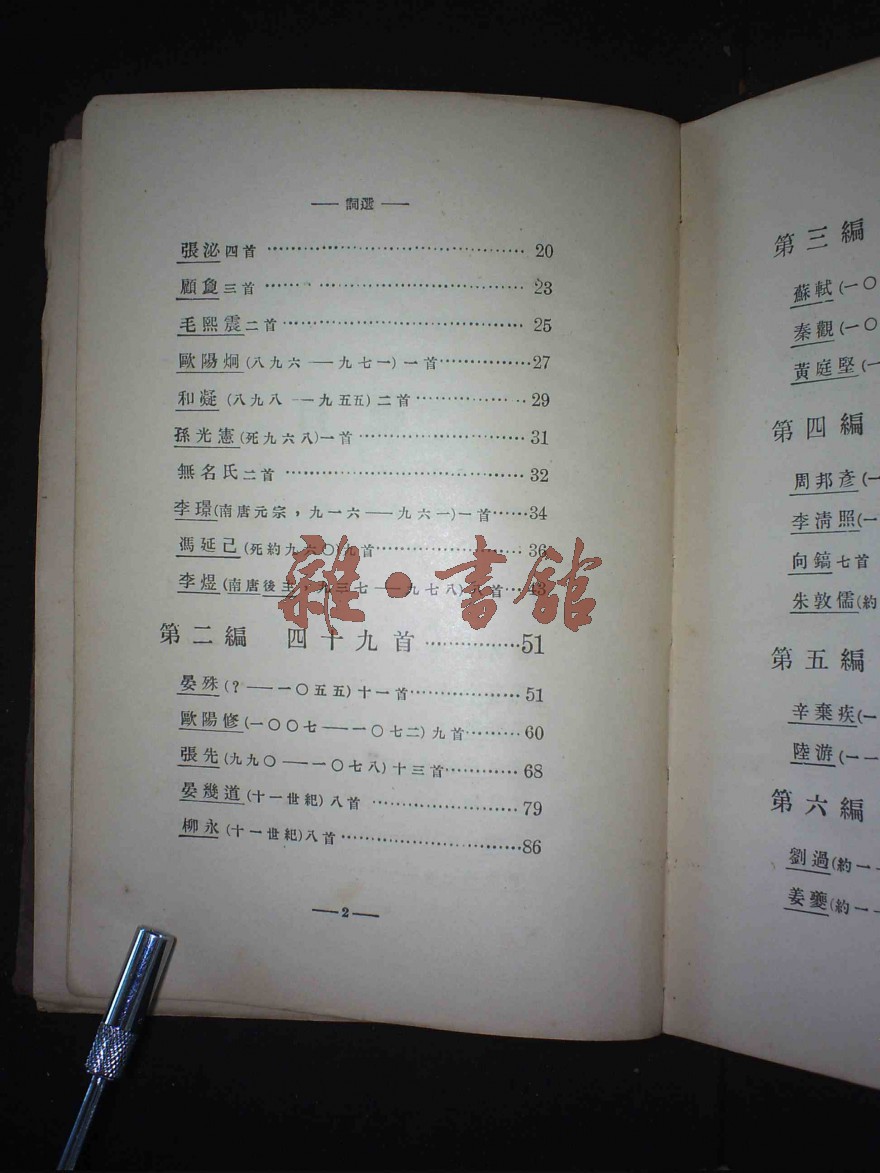 — 詞選 —
張泌四首 ⋯⋯ 20
顧敻三首 ⋯⋯ 23
毛熙震二首 ⋯⋯ 25
歐陽炯(八九六—九七一)一首 ⋯⋯ 27
和凝(八九八—九五五)二首 ⋯⋯ 29
孫光憲(死九六八)一首 ⋯⋯ 31
無名氏二首 ⋯⋯ 32
李璟(南唐元宗，九一六—九六一)一首 ⋯⋯ 34
馮延己(死約九六〇)九首 ⋯⋯ 36
李煜(南唐後主，九三七—九七八)八首 ⋯⋯ 43
第二編 四十九首 ⋯⋯ 51
晏殊(?—一〇五五)十一首 ⋯⋯ 51
歐陽修(一〇〇七—一〇七二)九首 ⋯⋯ 60
張先(九九〇—一〇七八)十三首 ⋯⋯ 68
晏幾道(十一世紀)八首 ⋯⋯ 79
柳永(十一世紀)八首 ⋯⋯ 86
— 2 —
雜·書館
第三編
蘇軾(一〇
秦觀(一〇
黃庭堅(一
第四編
周邦彥(一
李淸照(一
向鎬七首
朱敦儒(約
第五編
辛棄疾(一
陸游(一一
第六編
劉過(約一
姜夔(約一一